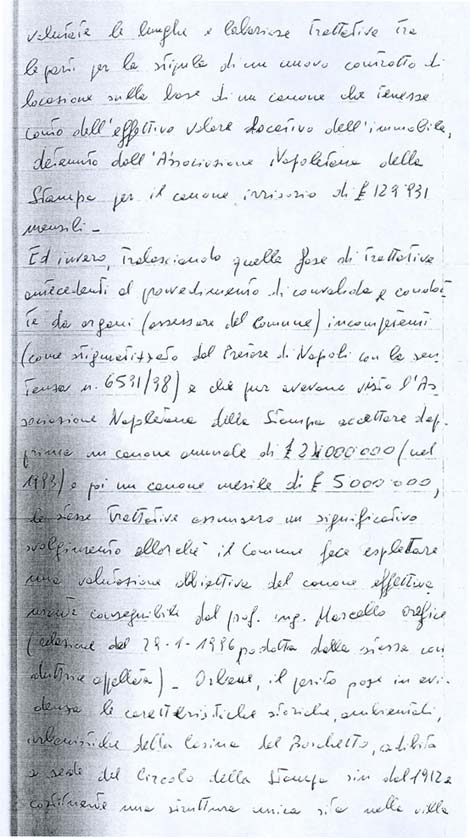 valutate le lunghe e laboriose trattative tra
le parti per la stipula di un nuovo contratto di
locazione sulla base di un canone che tenesse
conto dell'effettivo valore locativo dell'immobile,
detenuto dall'Associazione Napoletana della
Stampa per il canone irrisorio di £ 129.931
mensili -
Ed invero, tralasciando quella fase di trattative
antecedenti al provvedimento di convalida e condot-
te da organi (assessore del Comune) incompetenti
(come stigmatizzato dal Pretore di Napoli con la sen-
tenza n. 6531/98) e che pur avevano visto l'As-
sociazione Napoletana della Stampa accettare dap-
prima un canone annuale di £ 24.000.000 (nel
1993) e poi un canone mesile di £ 5.000.000,
le stesse trattative assunsero un significativo
svolgimento allorchè il Comune fece espletare
una valutazione obbiettiva del canone effettiva
mente conseguibile dal prof. ing. Marcello Orefice
(relazione del 29-1-1996 prodotta dalla stessa con
duttrice appellata) - Orbene, il perito pose in evi-
denza le caratteristiche storiche, ambientali,
urbanistiche della Casina del Boschetto, adibita
a sede del Circolo della Stampa sin dal 1912 e
costituente una struttura unica sita nella villa